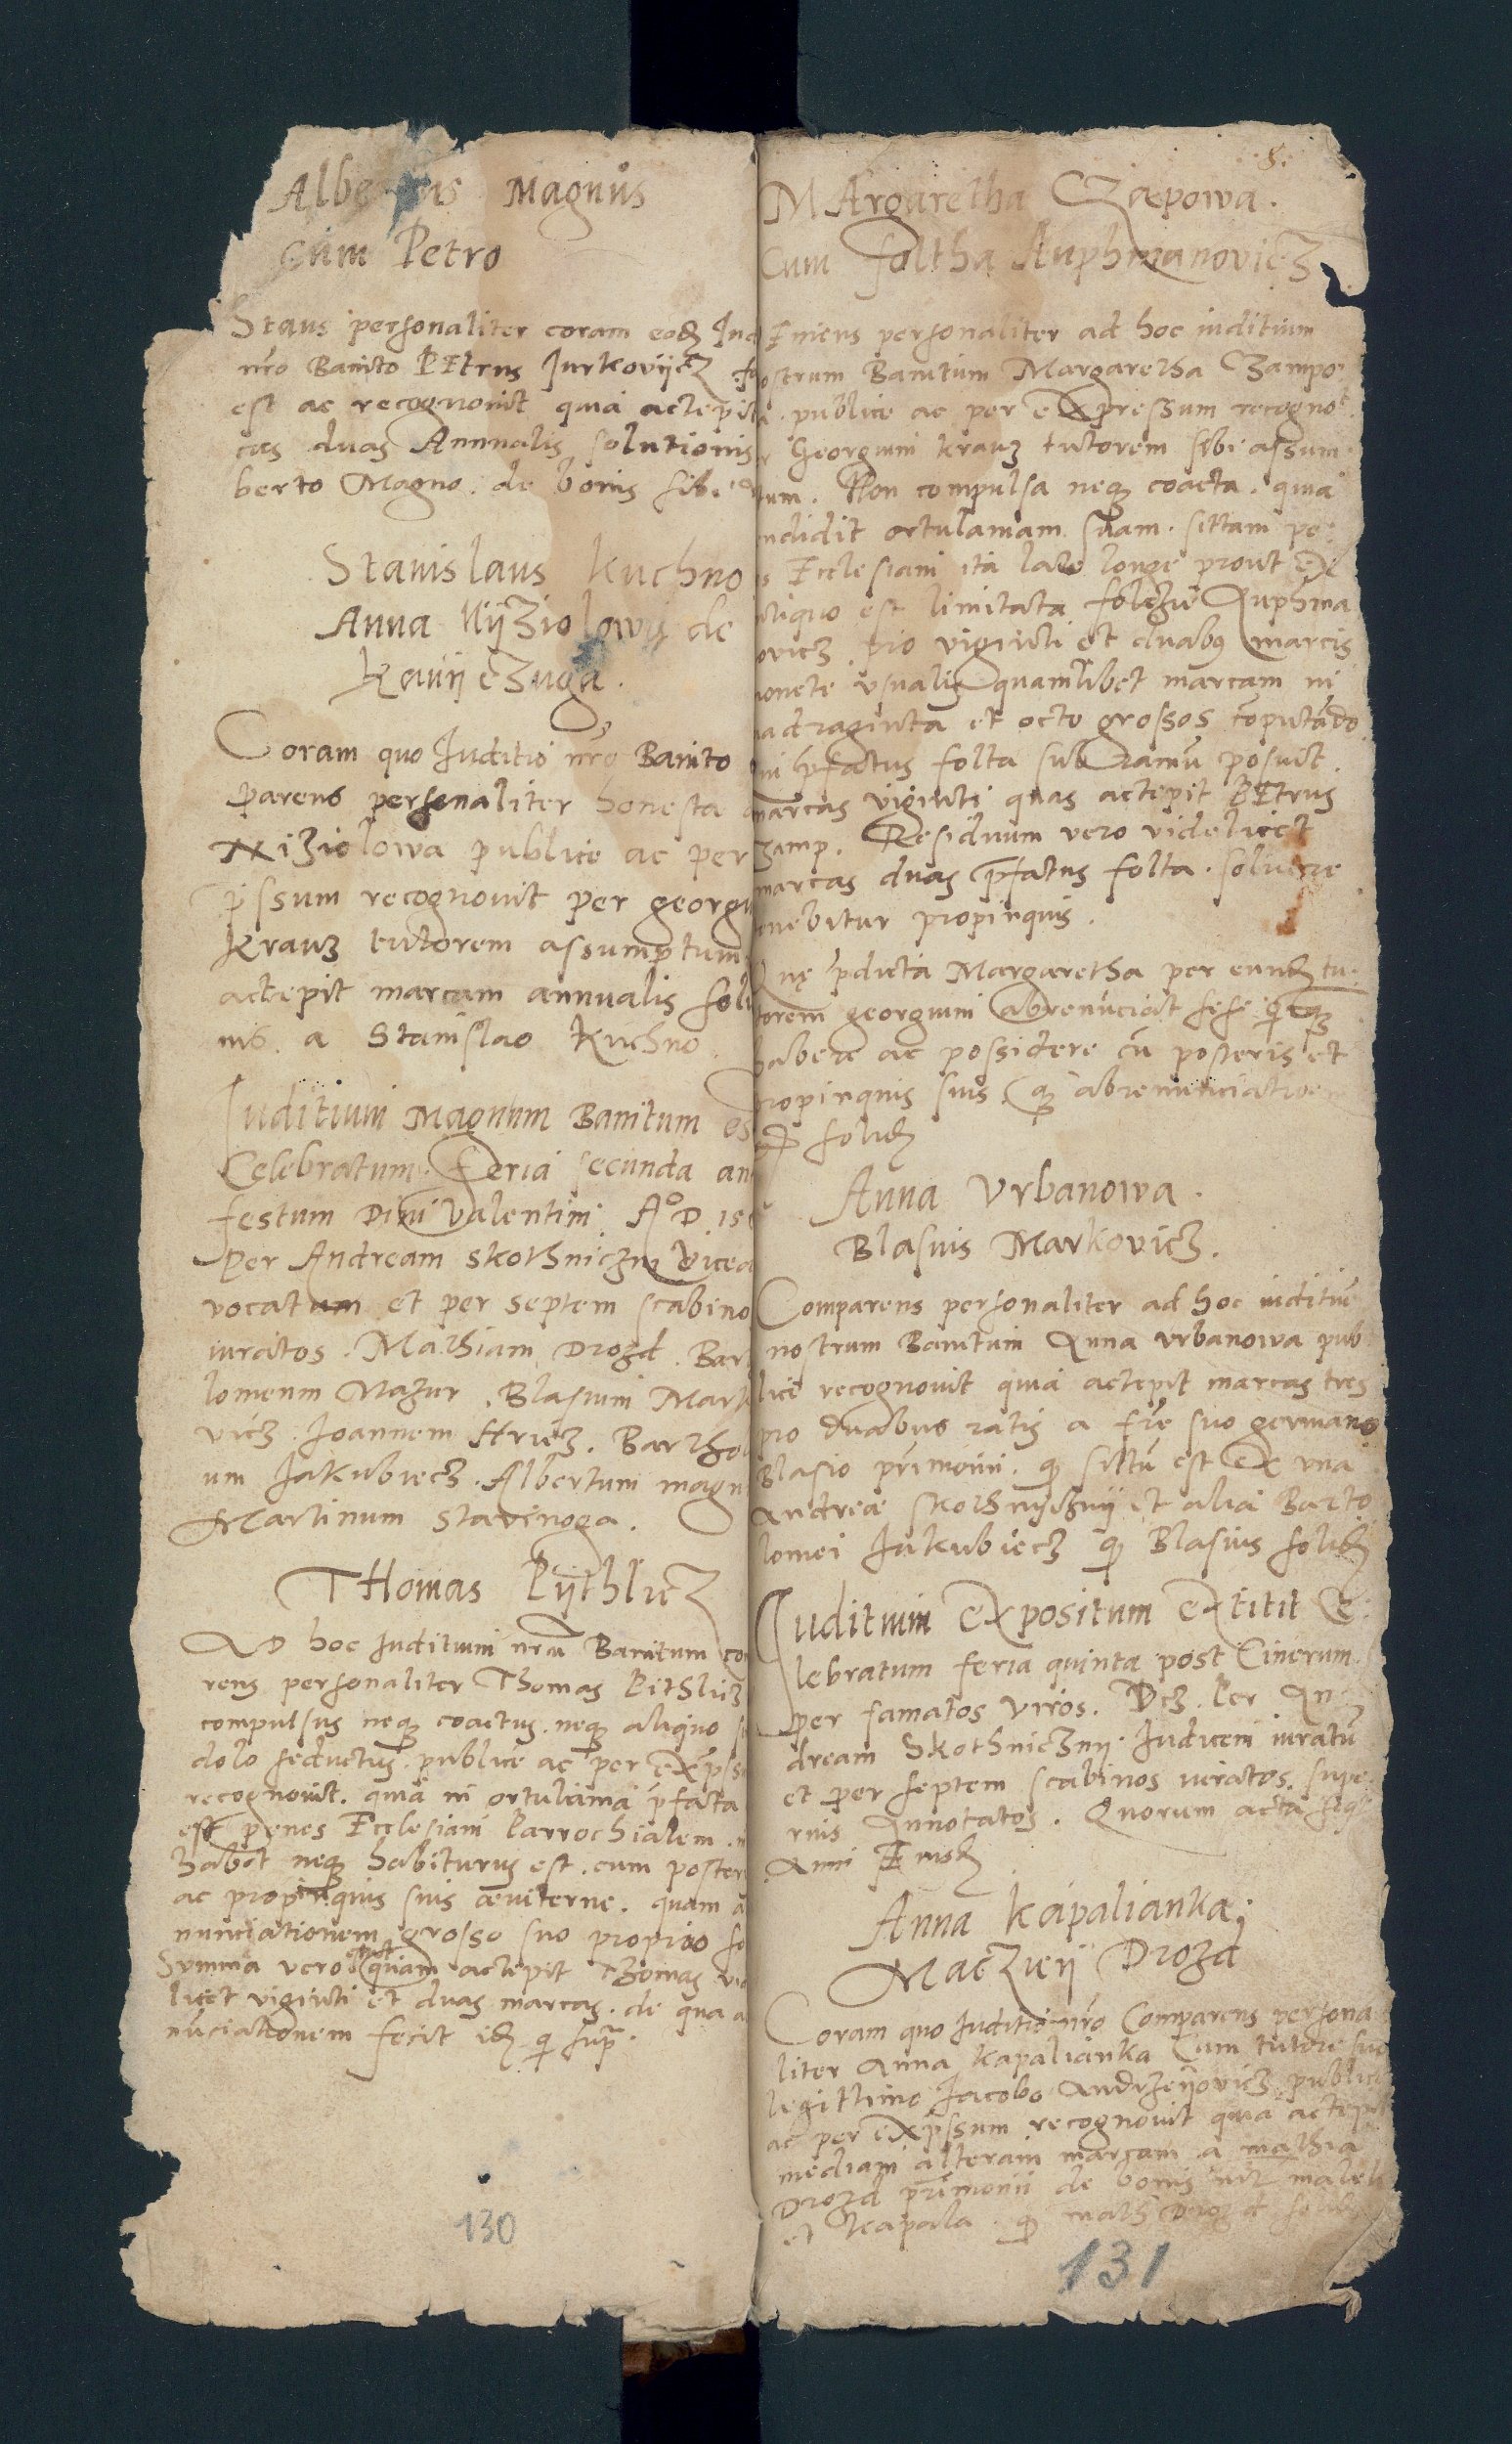 Albertus Magnus
cum Petro
Stans personaliter coram eodz Iud
nro Banito PEtrus Jurkovijcz
est ac recognovit quia actepit
cas duas Annualis solutionis
berto Magno. de bonis sibi
Stanislaus Kuchno
Anna Nijziolowij de
Kavijczuga.
Coram quo Juditio nro Banito
parens personaliter honesta
Niziolowa publice ac per
pssum recognovit per georgiu
Krauz tutorem assumptum
actepit marcam annualis solu
nis. a Stanislao Kuchno.
Juditium Magnum Banitum es
Celebratum. feria secunda an
festum Divi Valentini. A° D. 15
Per Andream Skothniczni Vicead
vocatum et per septem scabino
iuratos. Mathiam Drozd. Bar
lomeum Mazur. Blasium Mark
vicz. Joannem Hricz. Bartho
um Jakubiecz. Albertum magn
Martinum Stavinoga.
THomas Pijthlicz
AD hoc Juditium nru Banitum co
rens personaliter Thomas Pithlicz
compulsus neqz coactus. neqz aliquo
dolo seductus. publice ac per expss
recognovit. quia in ortulania pfata
est penes Ecclesiam Parrochialem.
habet neqz habiturus est. cum poster
ac propinquis suis aeviterne. quam a
nunciationem grosso suo proprio so
Summa vero quam actepit Thomas vi
licet viginti et duas marcas. de qua a
nuciationem fecit idz q supra.
130
8.
MArgaretha Czapowa.
Cum foltha Auphmanovicz
Eniens personaliter ad hoc iuditium
ostrum Banitum Margaretha Czampo
a. publice ac per expressum recogno
r Georgium Krauz tutorem sibi assum
tum. Non compulsa neqz coacta. quia
ndidit ortulaniam suam. sittam pe
s Ecclesiam ita late longe prout ex
ntiquo est limitata foltzie Auphma
ovicz pro viginti et duabus marcis
onete usualis quamlibet marcam in
adraginta et octo grossos coputado
ni pfatus folta sub ramu posuit.
marcas viginti quas actepit PEtrus
zamp. Residuum vero videlicet
marcas duas pfatus folta. solvere
enebitur propinquis.
Que pdicta Margaretha per eundz tu
torem georgium abrenuciat sese
habere ac possidere cu posteris et
ropinquis suis. abrenunciatioe
solidz
Anna Vrbanowa.
Blasius Markovicz.
Comparens personaliter ad hoc iuditiu
nostrum Banitum Anna Vrbanowa pub
lice recognovit quia actepit marcas tres
pro duabus ratis a fre suo germano
Blasio primonii. q sittu est ex una
Andree Skothnijcznij et alia Barto
lomei Jakubiecz q Blasius solidz
Juditium expositum extitit Ce
lebratum feria quinta post Cinerum
per famatos viros. Per An
dream Skothnicznij. Judicem iuratu
et per septem scabinos iuratos. supe
rius Annotatos. Quorum acta
Anni Eiusdz
Anna Kapalianka;
Maczieij Drozd
Coram quo Juditio nro Comparens persona
liter Anna Kapalianka Cum tutore suo
legittimo Jacobo Andrzeijovicz publice
ac per expssum recognovit quia actepit
mediam alteram marcam a mathia
Drozd primonii de bonis
et Kapala. q math Drozd solidz
131